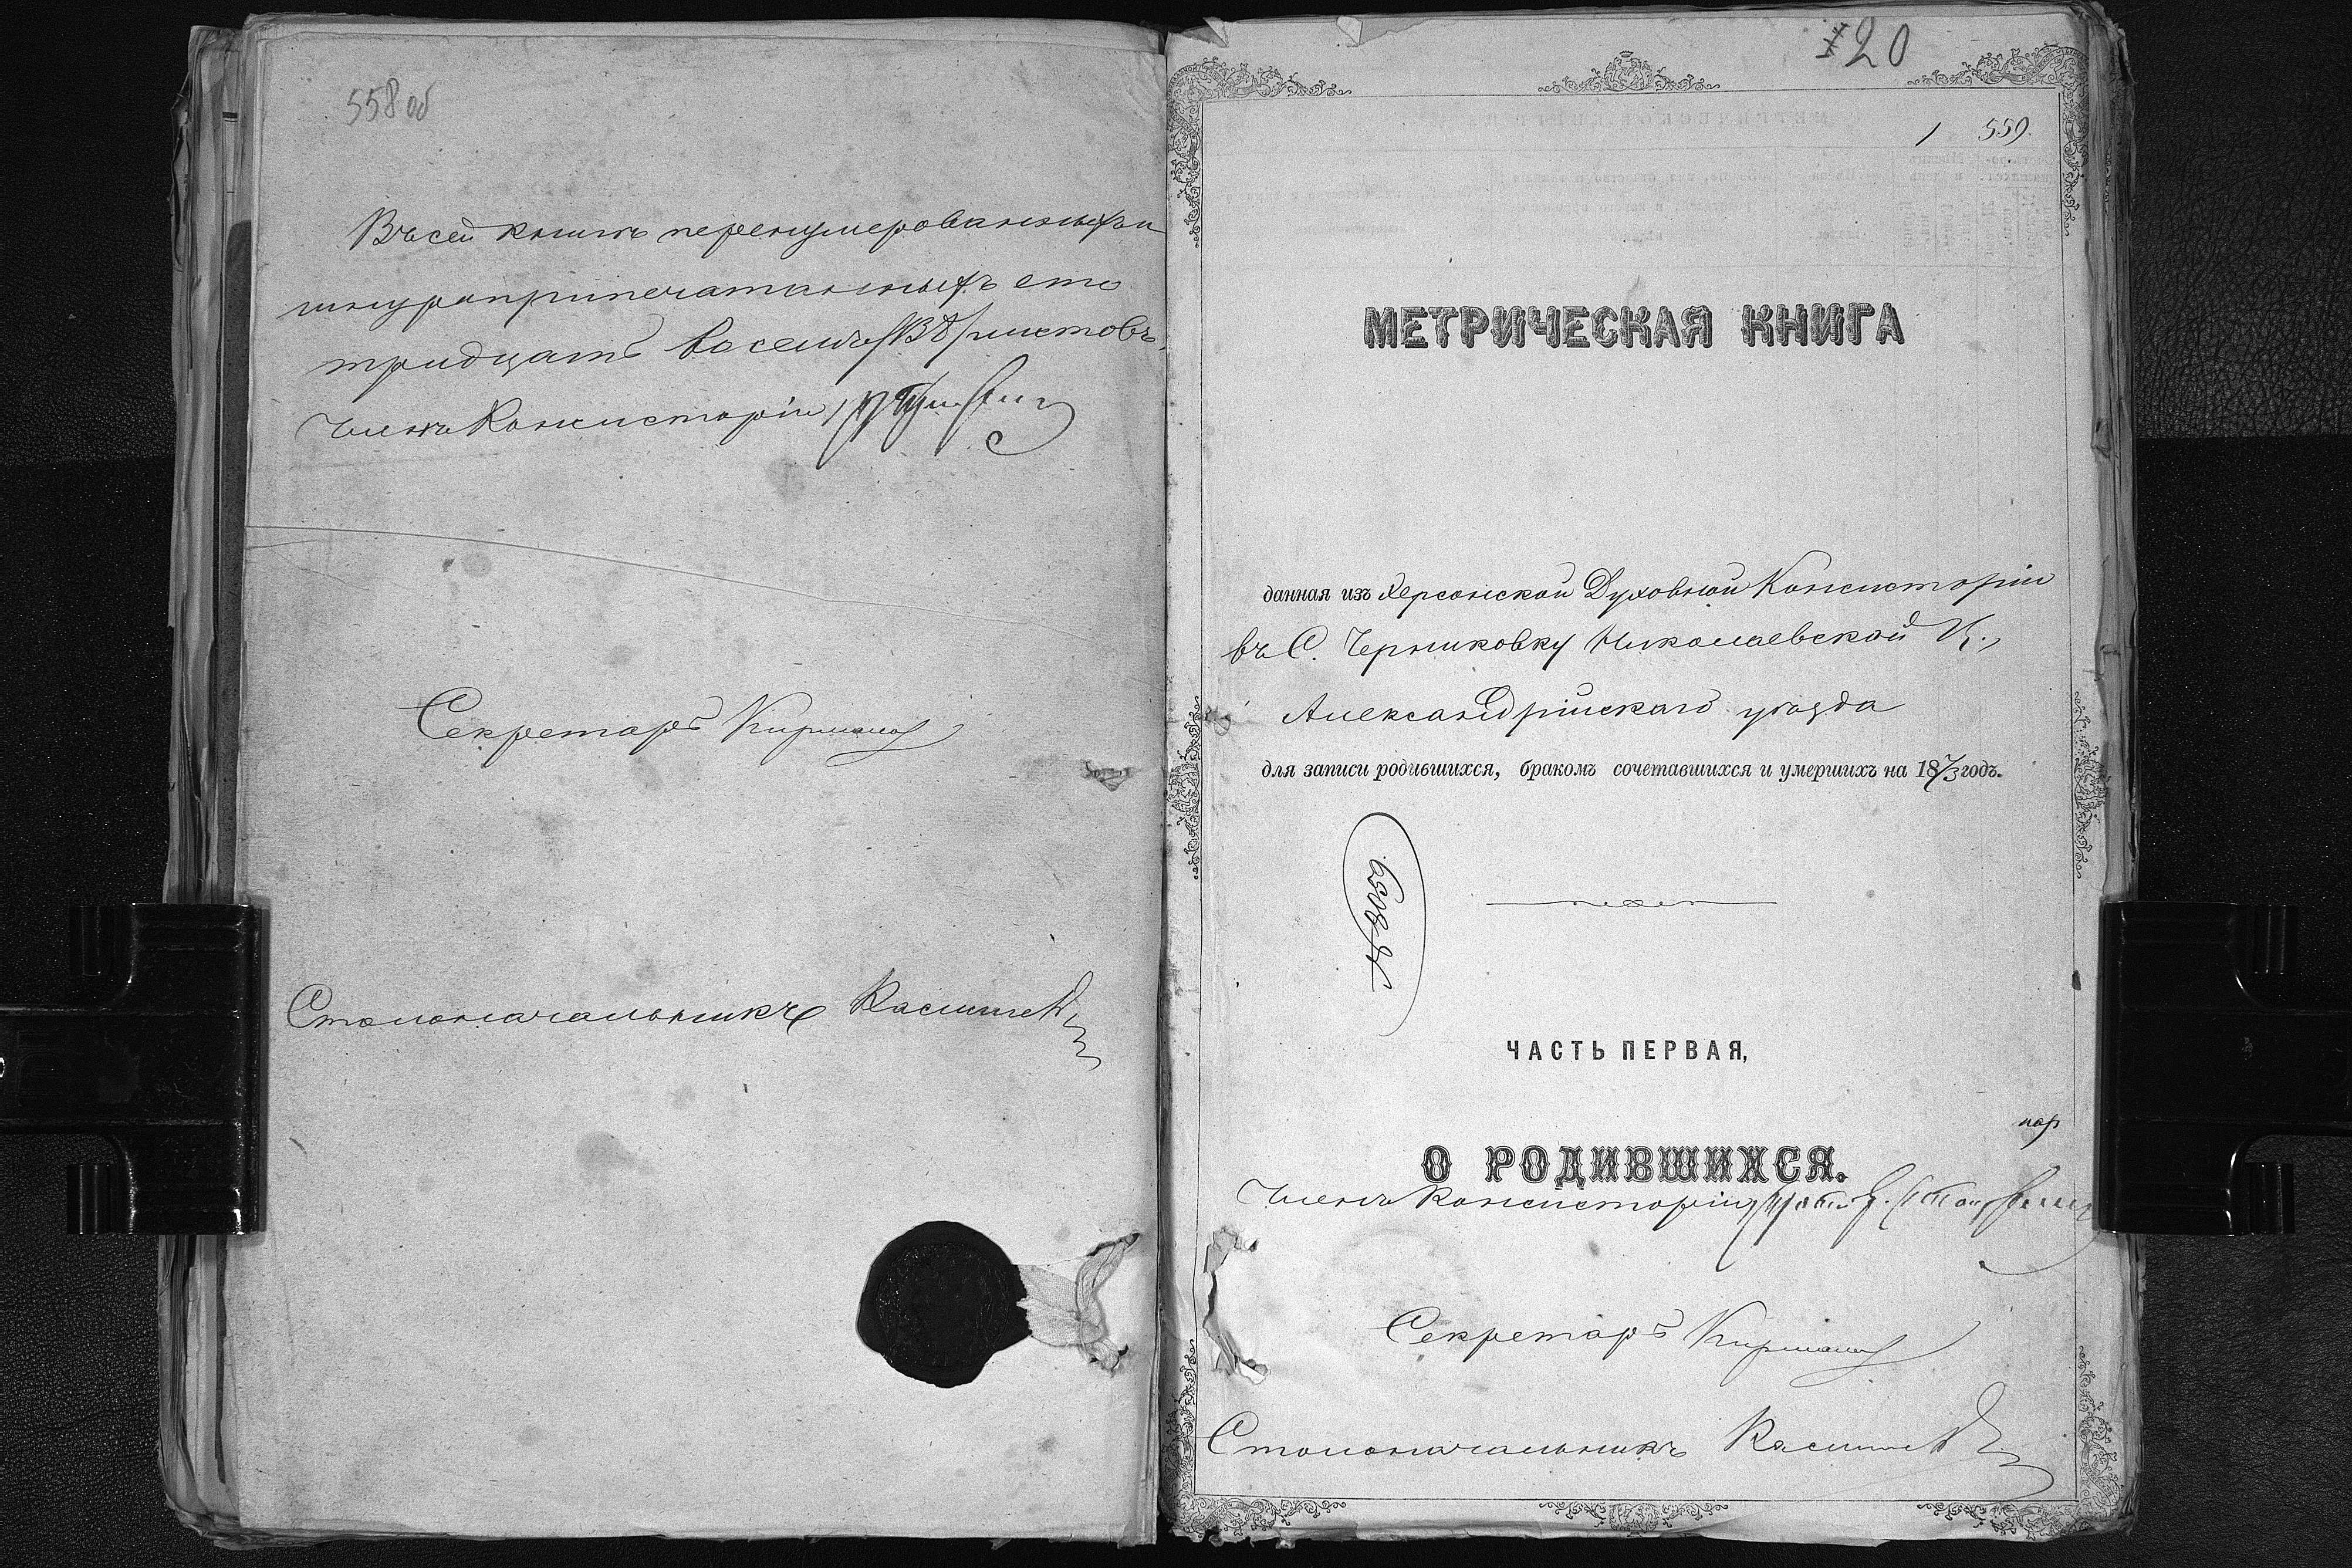 558 об
Въ сей книгѣ перенумерованныхъ и
шнуроприпечатанныхъ сто
тридцать восемь /138/ листовъ.
Членъ Консисторіи
Секретарь
Столоначальникъ
20
1 559.
МЕТРИЧЕСКАЯ КНИГА
данная изъ Херсонской Духовной Консисторіи
въ С. Черниковку Николаевской Ц.,
Александрійскаго уѣзда
для записи родившихся, бракомъ сочетавшихся и умершихъ на 1873 годъ.
ЧАСТЬ ПЕРВАЯ,
О РОДИВШИХСЯ.
Членъ Консисторіи
Секретарь
Столоначальникъ